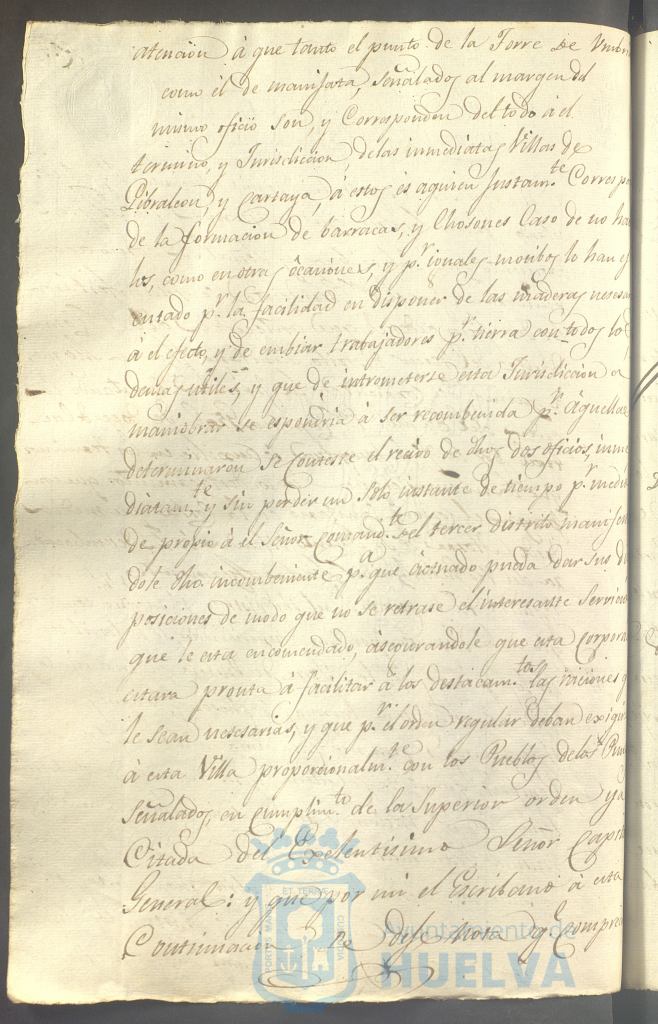 atencion à que tanto el punto de la Torre de Umbri
como el de manifata, señalados al margen del
mismo oficio son, y Corresponden del todo à el
termino, y Jurisdiccion, de las inmediatas Villas de
Gibraleon, y Cartaya, à estos es aquien Justam.te Correspon
de la formacion de barracas, y Chosones Caso de no ha
los, como en otras òcasiones, y p.r iguales motibos lo han ej
cutado p.r la facilidad en disponer de las maderas nesesa
à el efecto, y de embiar trabajadores p.r tierra con todos lo
demas ùtiles, y que de intrometerse esta Jurisdiccion a
maniobrar se espondria à ser recombenida p.r aquellas
determinaron se conteste el recivo de dhos dos oficios, inme
diatam.te y sin perder un solo instante de tiempo p.r medio
de propio à el Señor Comand.te del tercer distrito manifesn
dole dho. incombeniente p.a que actuado pueda dar sus di
posiciones de modo que no se retrase el interesante Servicio
que le esta encomendado, àsegurandole que esta Corpora
estara pronta à facilitar à los destacam.tos las raciones q
le sean nesesarias, y que p.r el orden regular deban exigir
à esta Villa proporcionalm.te con los Pueblos de los Pun
señalados, en Cumplim.to de la Superior orden ya
Citada del Exelentisimo Señor Capi
General: y que por mi el Escribano à esta
Continuacion se deje Nota q.e Compre
Ayuntamiento de
HUELVA